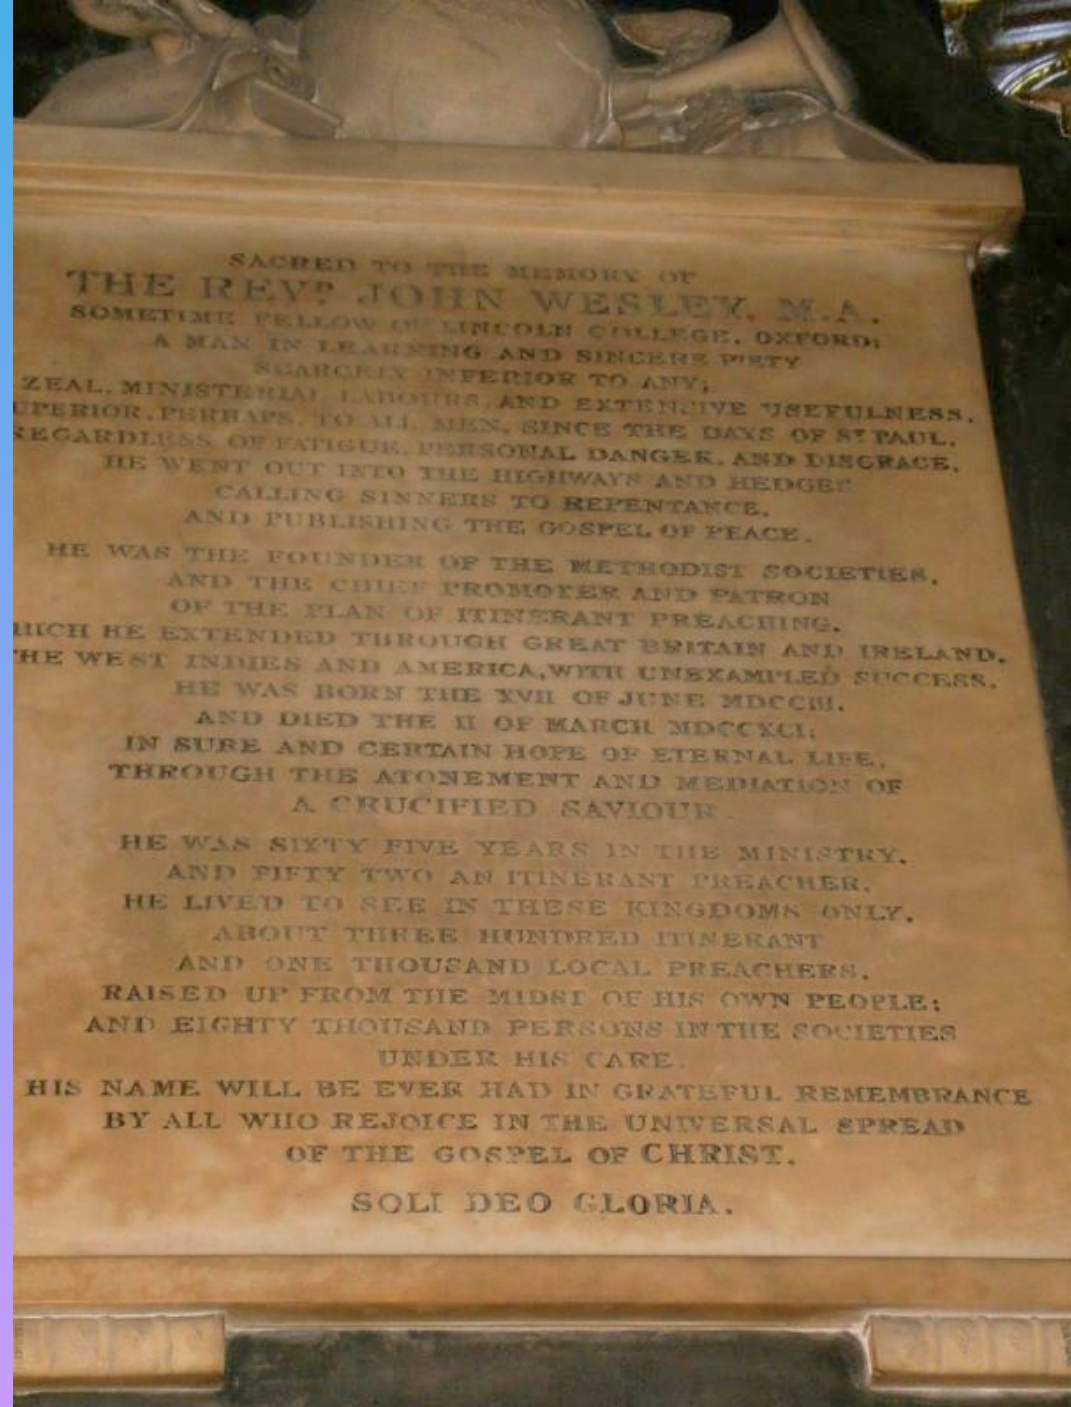 SACRED TO THE MEMORY OF
THE REVD. JOHN WESLEY, M.A.
SOMETIME FELLOW OF LINCOLN COLLEGE, OXFORD;
A MAN IN LEARNING AND SINCERE PIETY
SCARCELY INFERIOR TO ANY;
ZEAL, MINISTERIAL LABOURS, AND EXTENSIVE USEFULNESS,
UPERIOR, PERHAPS, TO ALL MEN, SINCE THE DAYS OF ST PAUL.
REGARDLESS OF FATIGUE, PERSONAL DANGER, AND DISGRACE,
HE WENT OUT INTO THE HIGHWAYS AND HEDGES
CALLING SINNERS TO REPENTANCE,
AND PUBLISHING THE GOSPEL OF PEACE.
HE WAS THE FOUNDER OF THE METHODIST SOCIETIES,
AND THE CHIEF PROMOTER AND PATRON
OF THE PLAN OF ITINERANT PREACHING,
HICH HE EXTENDED THROUGH GREAT BRITAIN AND IRELAND,
THE WEST INDIES AND AMERICA, WITH UNEXAMPLED SUCCESS.
HE WAS BORN THE XVII OF JUNE MDCCIII.
AND DIED THE II OF MARCH MDCCXCI;
IN SURE AND CERTAIN HOPE OF ETERNAL LIFE,
THROUGH THE ATONEMENT AND MEDIATION OF
A CRUCIFIED SAVIOUR.
HE WAS SIXTY FIVE YEARS IN THE MINISTRY,
AND FIFTY TWO AN ITINERANT PREACHER.
HE LIVED TO SEE IN THESE KINGDOMS ONLY,
ABOUT THREE HUNDRED ITINERANT
AND ONE THOUSAND LOCAL PREACHERS,
RAISED UP FROM THE MIDST OF HIS OWN PEOPLE;
AND EIGHTY THOUSAND PERSONS IN THE SOCIETIES
UNDER HIS CARE.
HIS NAME WILL BE EVER HAD IN GRATEFUL REMEMBRANCE
BY ALL WHO REJOICE IN THE UNIVERSAL SPREAD
OF THE GOSPEL OF CHRIST.
SOLI DEO GLORIA.